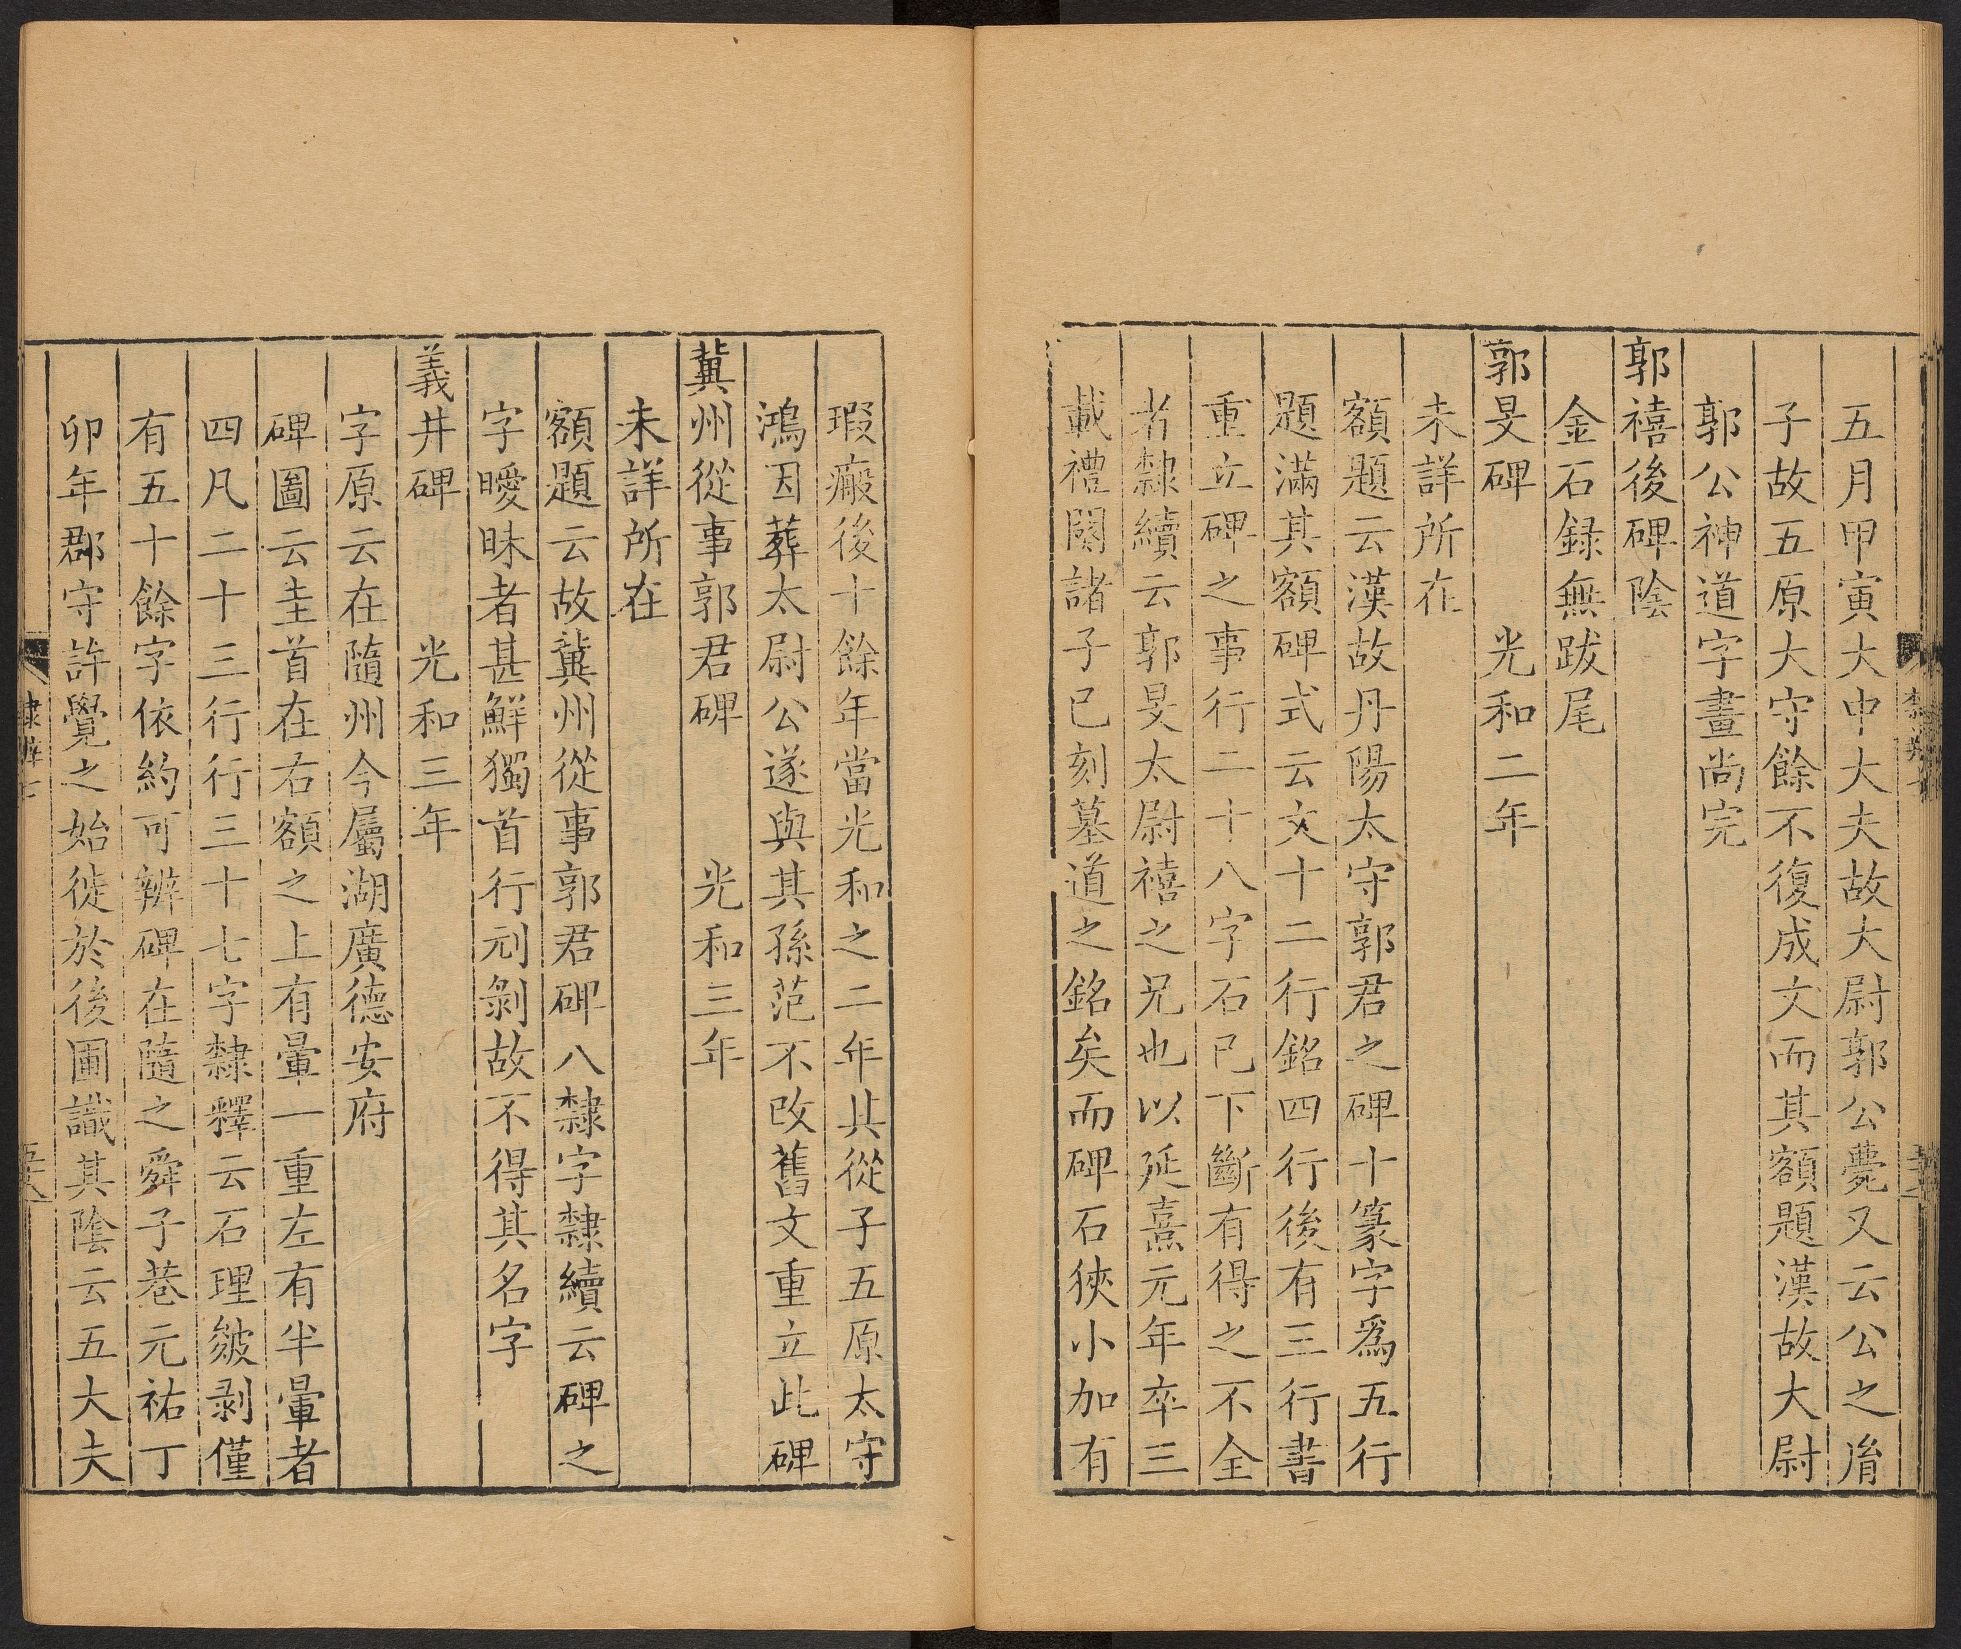 五月甲寅大中大夫故大尉郭公薨又云公之胤
子故五原大守餘不復成文而其額題漢故大尉
郭公神道字畫尚完
郭禧後碑陰
金石録無跋尾
郭旻碑 光和二年
未詳所在
額題云漢故丹陽太守郭君之碑十篆字爲五行
題滿其額碑式云文十二行銘四行後有三行書
重立碑之事行二十八字石已下斷有得之不全
者隸續云郭旻太尉禧之兄也以延熹元年卒三
載禮闋諸子已刻墓道之銘矣而碑石狹小加有
瑕癜後十餘年當光和之二年其從子五原太守
鴻因葬太尉公遂與其孫范不改舊文重立此碑
冀州從事郭君碑 光和三年
未詳所在
額題云故冀州從事郭君碑八隸字隸續云碑之
字曖昧者甚鮮獨首行刓剝故不得其名字
義井碑 光和三年
字原云在隨州今屬湖廣德安府
碑圖云圭首在右額之上有暈一重左有半暈者
四凡二十三行行三十七字隸釋云石理皴剥僅
有五十餘字依約可辨碑在隨之舜子巷元祐丁
卯年郡守許覺之始徙於後圃識其陰云五大夫
隸辨七